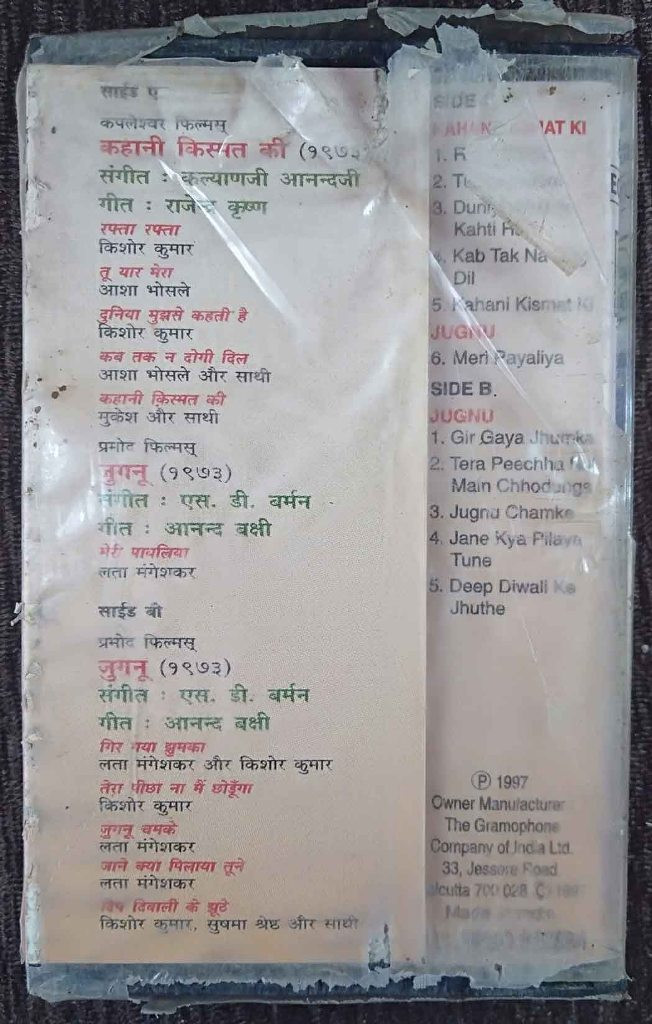 साईड ए
कपलेश्वर फिल्मस्
कहानी किस्मत की (१९७३
संगीत : कल्याणजी आनन्दजी
गीत : राजेन्द्र कृष्ण
रफ्ता रफ्ता
किशोर कुमार
तू यार मेरा
आशा भोसले
दुनिया मुझसे कहती है
किशोर कुमार
कब तक न दोगी दिल
आशा भोसले और साथी
कहानी क़िस्मत की
मुकेश और साथी
प्रमोद फिल्मस्
जुगनू (१९७३)
संगीत : एस. डी. बर्मन
गीत : आनन्द बक्षी
मेरी पायलिया
लता मंगेशकर
साईड बी
प्रमोद फिल्मस्
जुगनू (१९७३)
संगीत : एस. डी. बर्मन
गीत : आनन्द बक्षी
गिर गया झुमका
लता मंगेशकर और किशोर कुमार
तेरा पीछा ना मैं छोडूँगा
किशोर कुमार
जुगनू चमके
लता मंगेशकर
जाने क्या पिलाया तूने
लता मंगेशकर
दिप दिवाली के झूठे
किशोर कुमार, सुषमा श्रेष्ठ और साथी
SIDE
KAHANI KISMAT KI
1. R
2.
3. Duniya
Kahti
4. Kab Tak Na
Dil
5. Kahani Kismat Ki
JUGNU
6. Meri Payaliya
SIDE B.
JUGNU
1. Gir Gaya Jhumka
2. Tera Peechha
Main Chhodunga
3. Jugnu Chamke
4. Jane Kya Pilaya
Tune
5. Deep Diwali Ke
Jhuthe
Ⓟ 1997
Owner Manufacturer
The Gramophone
Company of India Ltd.
33, Jessore Road
alcutta 700 028